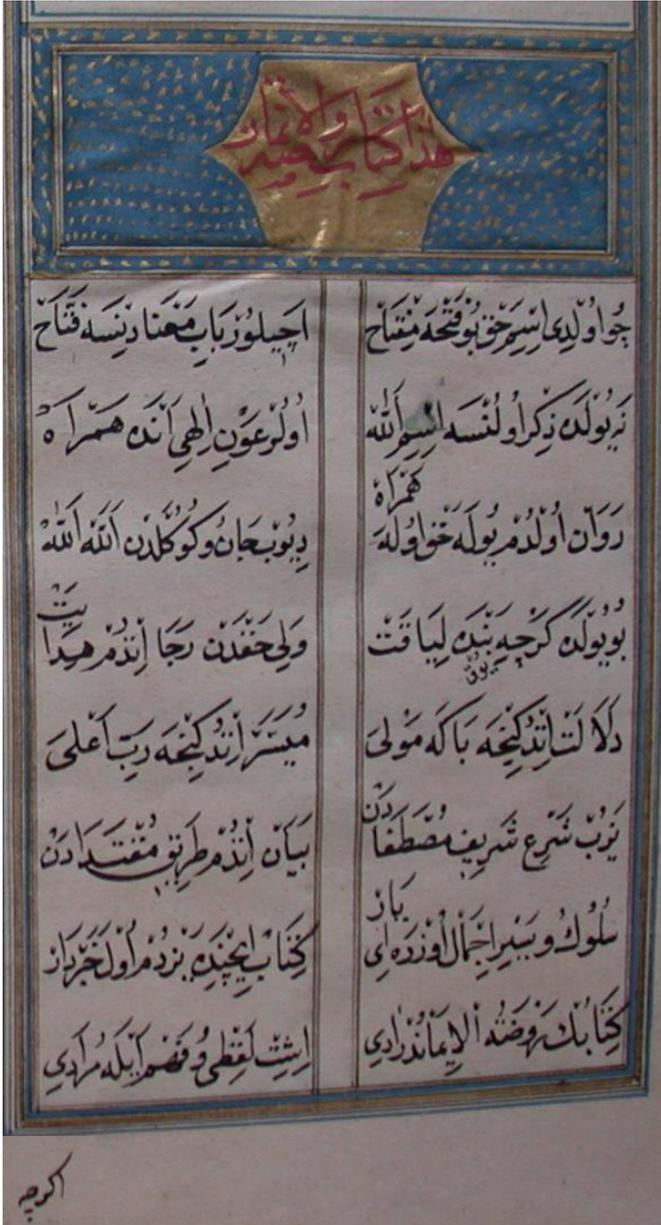 هذا كتاب روضة الايمان
چو اولدى اسم حق بو فتحه مفتاح اچيلور باب معنا دينسه فتاح
نه يولده ذكر اولنسه اسم الله اولر عون الهى انده همراه
روان اولدم يوله حق اوله همراه ديوب جان و كوكلدن الله الله
بو يولده كرچه بنده يوق لياقت ولى حقدن رجا اتدم هدايت
دلالت اتدكنجه باكه مولى ميسر اتدكنجه رب اعلى
يزب شرع شريف مصطفادن بيان اتدم طريق مقتدادن
سلوك و سير اجمال اوزره اى يار كتاب ايچنده يزدم اول خبردار
كتابك روضة الايماندر ادى اشت لفظى و فهم ايله مرادى
اكرچه